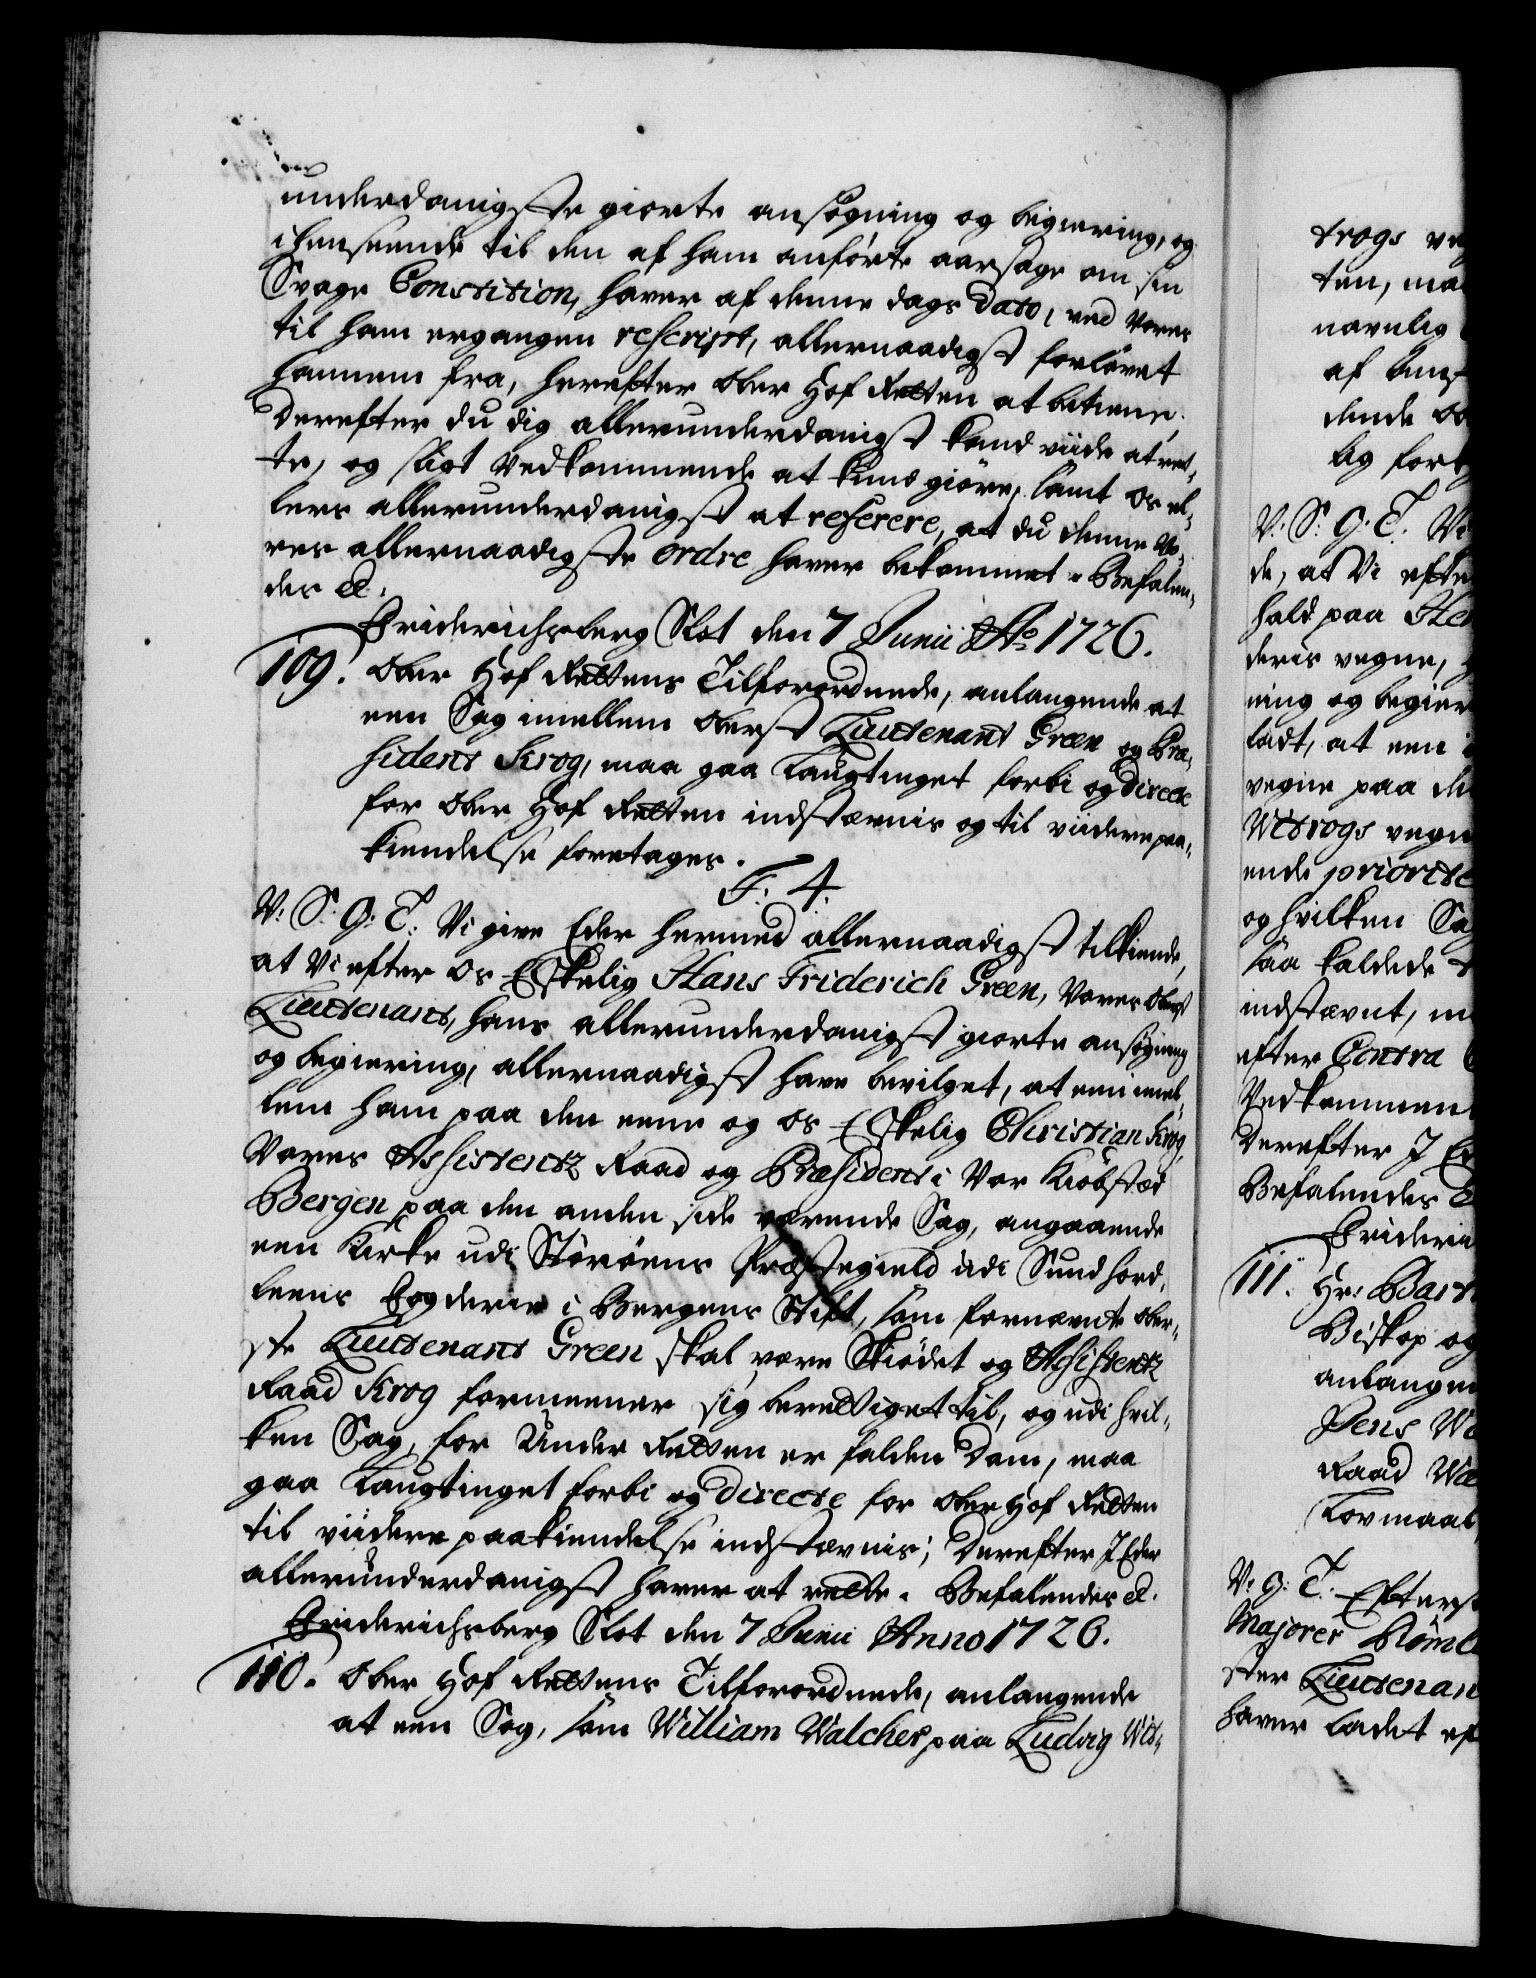 underdanigste giorte ansøgning og begiering, og
i henseende til den af ham anførte aarsage om sin
Svage Constition, haver af denne dags Dato, ved Vores
til ham ergangen rescript, allernaadigst forløvet
hannem fra, herefter Ober Hof Retten at betiene.
Derefter du dig allerunderdanigst kand viide at ret-
te, og sligt Vedkommende at kundgiøre, samt os el-
lers allerunderdanigst at referere, at du denne Vo-
res allernaadigste ordre haver bekommet. Befalen-
des etc.
Friderichsberg Slot den 7 Junii Ao 1726.
109. Ober Hof Rettens Tilforordnede, anlangende at
een Sag imellem Oberst Lieutenant Green og Præ-
sident Krog, maa gaa Laugtinget forbi og directe
for Ober Hof Retten indstævnis og til viidere paa-
kiendelse foretages.
F. 4.
V: S: G: T: Vi give Eder hermed allernaadigst tilkiende,
at Vi efter Os Elskelig Hans Friderich Green, Vores Oberst
Lieutenants, hans allerunderdanigst giorte ansøgning
og begiering, allernaadigst have bevilget, at een imel-
lem ham paa den eene og Os Elskelig Christian Krog,
Vores Assistentz Raad og Præsident i Vor Kiøbstæd
Bergen paa den anden side værende Sag, angaaende
een Kirke udi Størøens Præstegield udi Sundhord-
leens Fogderie i Bergens Stift, som fornævnte Ober-
ste Lieutenant Green skal være Skiødet og Assistentz
Raad Krog formeener sig berettiget til, og udi hvil-
ken Sag, for Under Retten er falden Dom, maa
gaa Laugtinget forbi og directe for Ober Hof Retten
til viidere paakiendelse indstævnis; Derefter I Eder
allerunderdanigst haver at rette. Befalendes etc.
Friderichsberg Slot den 7 Junii Anno 1726.
110. Ober Hof Rettens Tilforordnede, anlangende
at een Sag, som William Walcher paa Ludvig Wit-
trogs
ten,
navnlig
af
dende
lig
V: S: G: T: Vi
de, at Vi efter
hald paa
deris vegne,
ning og begier
ladt, at een
vegne paa
Witrogs vegne
ende
og hvilken Sag
saa kaldede
indstævnt,
efter Contra
Vedkommen
Derefter I
Befalendes
Frideri
111. Hr:
Biskop og
anlangen
Jens
Raad
Lovmaal
V: G: T: Efter
Majorer
ster Lieutenan
haver ladet